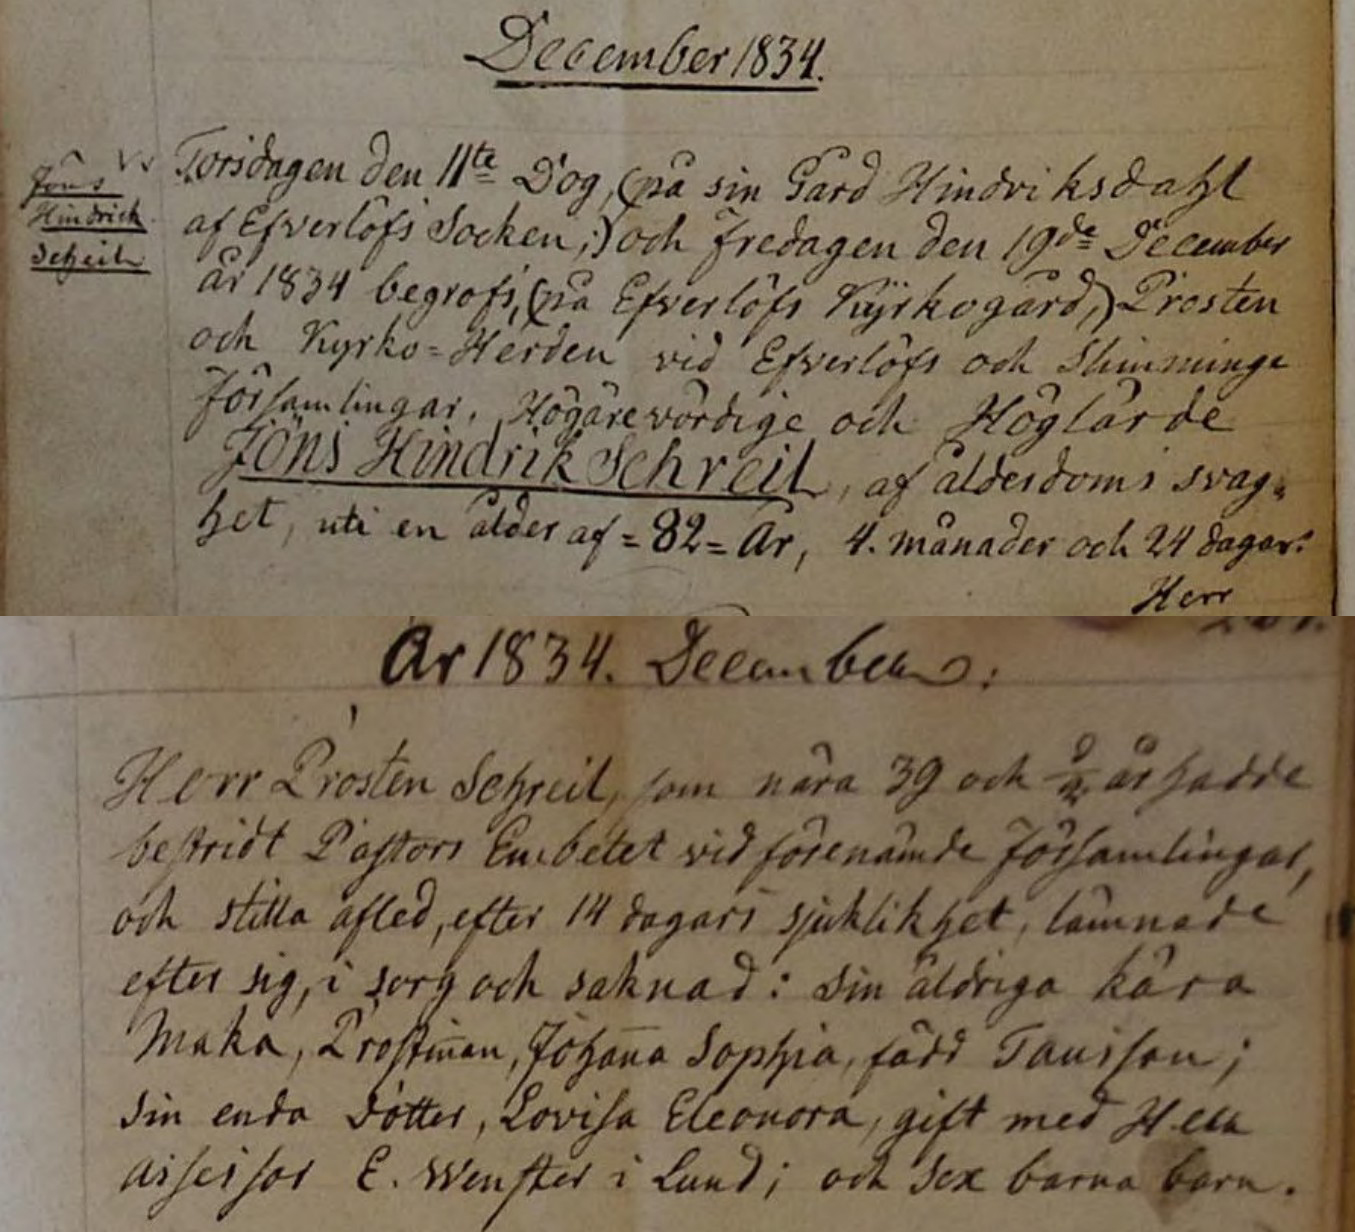 December 1834.
Jöns
Hindrick
Schreil
Torsdagen den 11te Dog, (på sin Gård Hindriksdahl
af Efverlöfs Socken;) och Fredagen den 19de December
år 1834 begrofs, (på Efverlöfs Kyrkogård,) Prosten
och Kyrko=Herden vid Efverlöfs och Slimminge
Församlingar, Högärevördige och Höglärde
Jöns Hindrik Schreil, af ålderdoms svag=
het, uti en ålder af = 82 = År, 4. månader och 24 dagar.
Herr
År 1834. December:
Herr Prosten Schreil, som nära 39 och år hade
bestridt Pastors Embetet vid förenämde Församlingar,
och stilla afled, efter 14 dagars sjuklikhet, lämnade
efter sig, i sorg och saknad: sin åldriga kära
Maka, Prostinnan, Johanna Sophia, född Tauson;
sin enda dotter, Lovisa Eleonora, gift med Herr
assessor E. Wenster i Lund; och Sex barna barn.